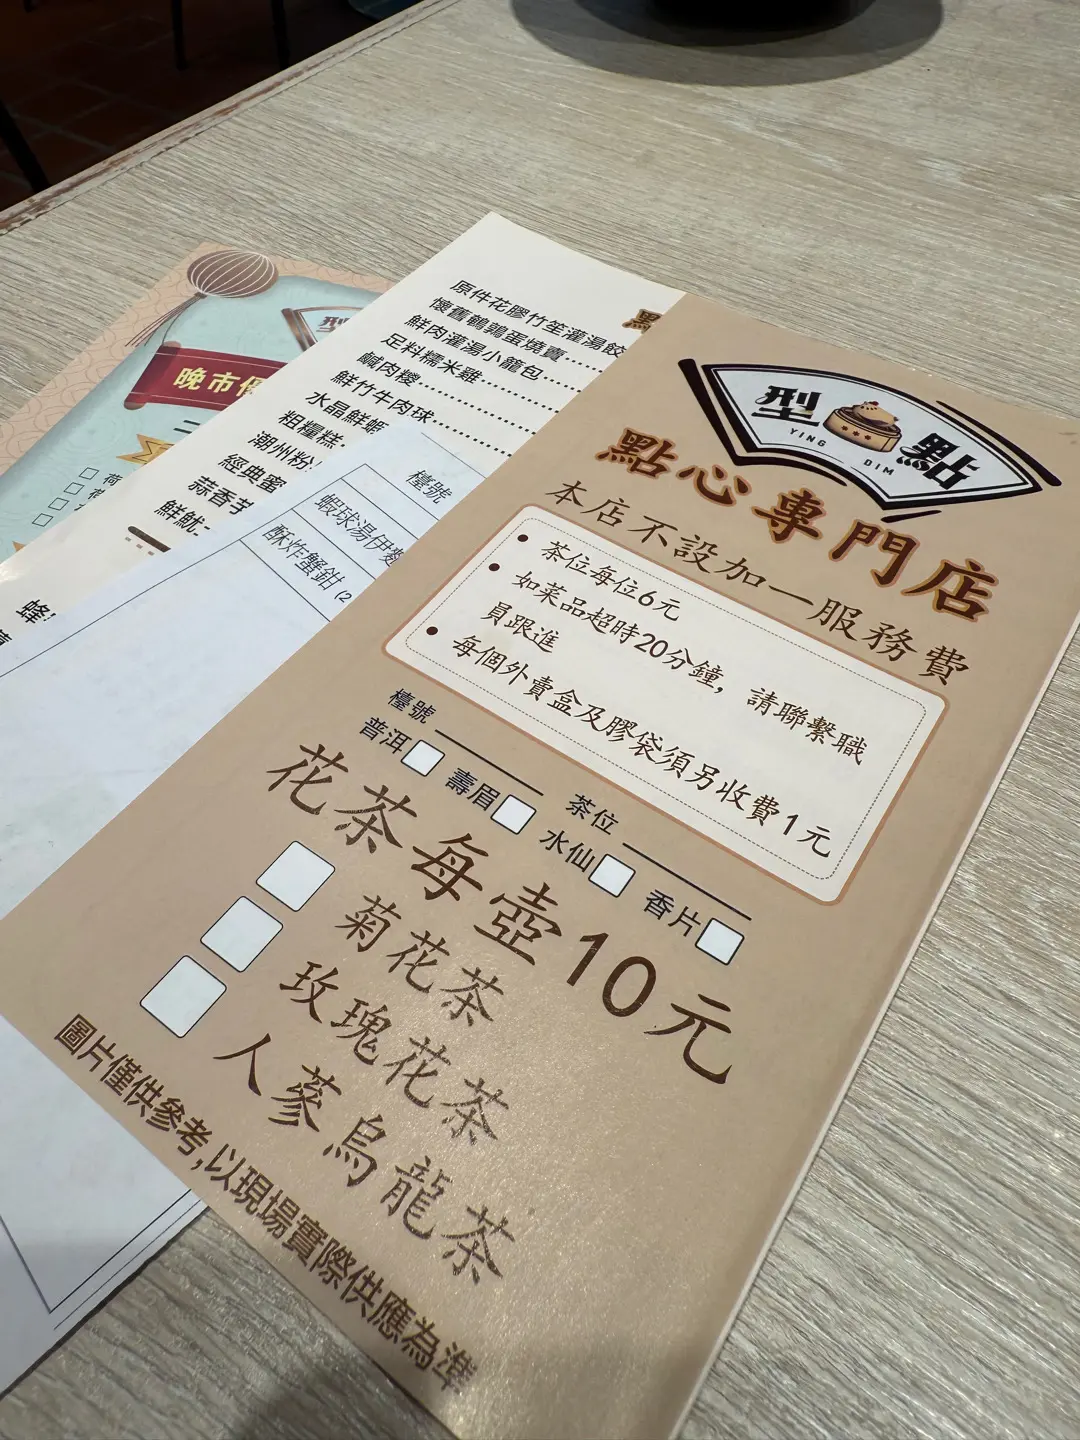 型點
YING DIM
點心專門店
本店不設加一服務費
• 茶位每位6元
• 如菜品超時20分鐘，請聯繫職
員跟進
• 每個外賣盒及膠袋須另收費1元
檯號 茶位
普洱 壽眉 水仙 香片
花茶每壺10元
菊花茶
玫瑰花茶
人蔘烏龍茶
圖片僅供參考,以現場實際供應為準
原件花膠竹笙灌湯餃
懷舊鵪鶉蛋燒賣
鮮肉灌湯小籠包
足料糯米雞
鹹肉糉
鮮竹牛肉球
水晶鮮蝦
粗糧糕
潮州粉
經典蜜
蒜香芋
鮮魷
檯號
蝦球湯伊麵
酥炸蟹鉗(2
型
晚市